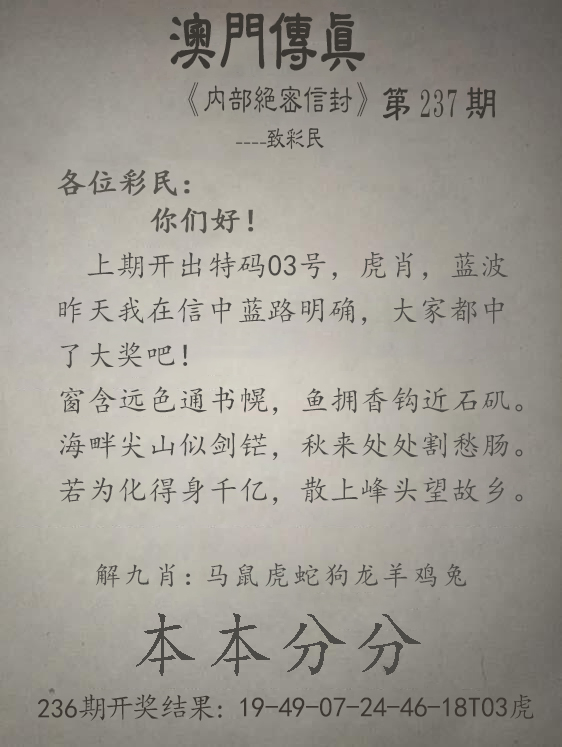 澳門傳真
《内部絕密信封》第237期
----致彩民
各位彩民：
你们好！
上期开出特码03号，虎肖，蓝波
昨天我在信中蓝路明确，大家都中
了大奖吧！
窗含远色通书幌，鱼拥香钩近石矶。
海畔尖山似剑铓，秋来处处割愁肠。
若为化得身千亿，散上峰头望故乡。
解九肖：马鼠虎蛇狗龙羊鸡兔
本本分分
236期开奖结果：19-49-07-24-46-18T03虎